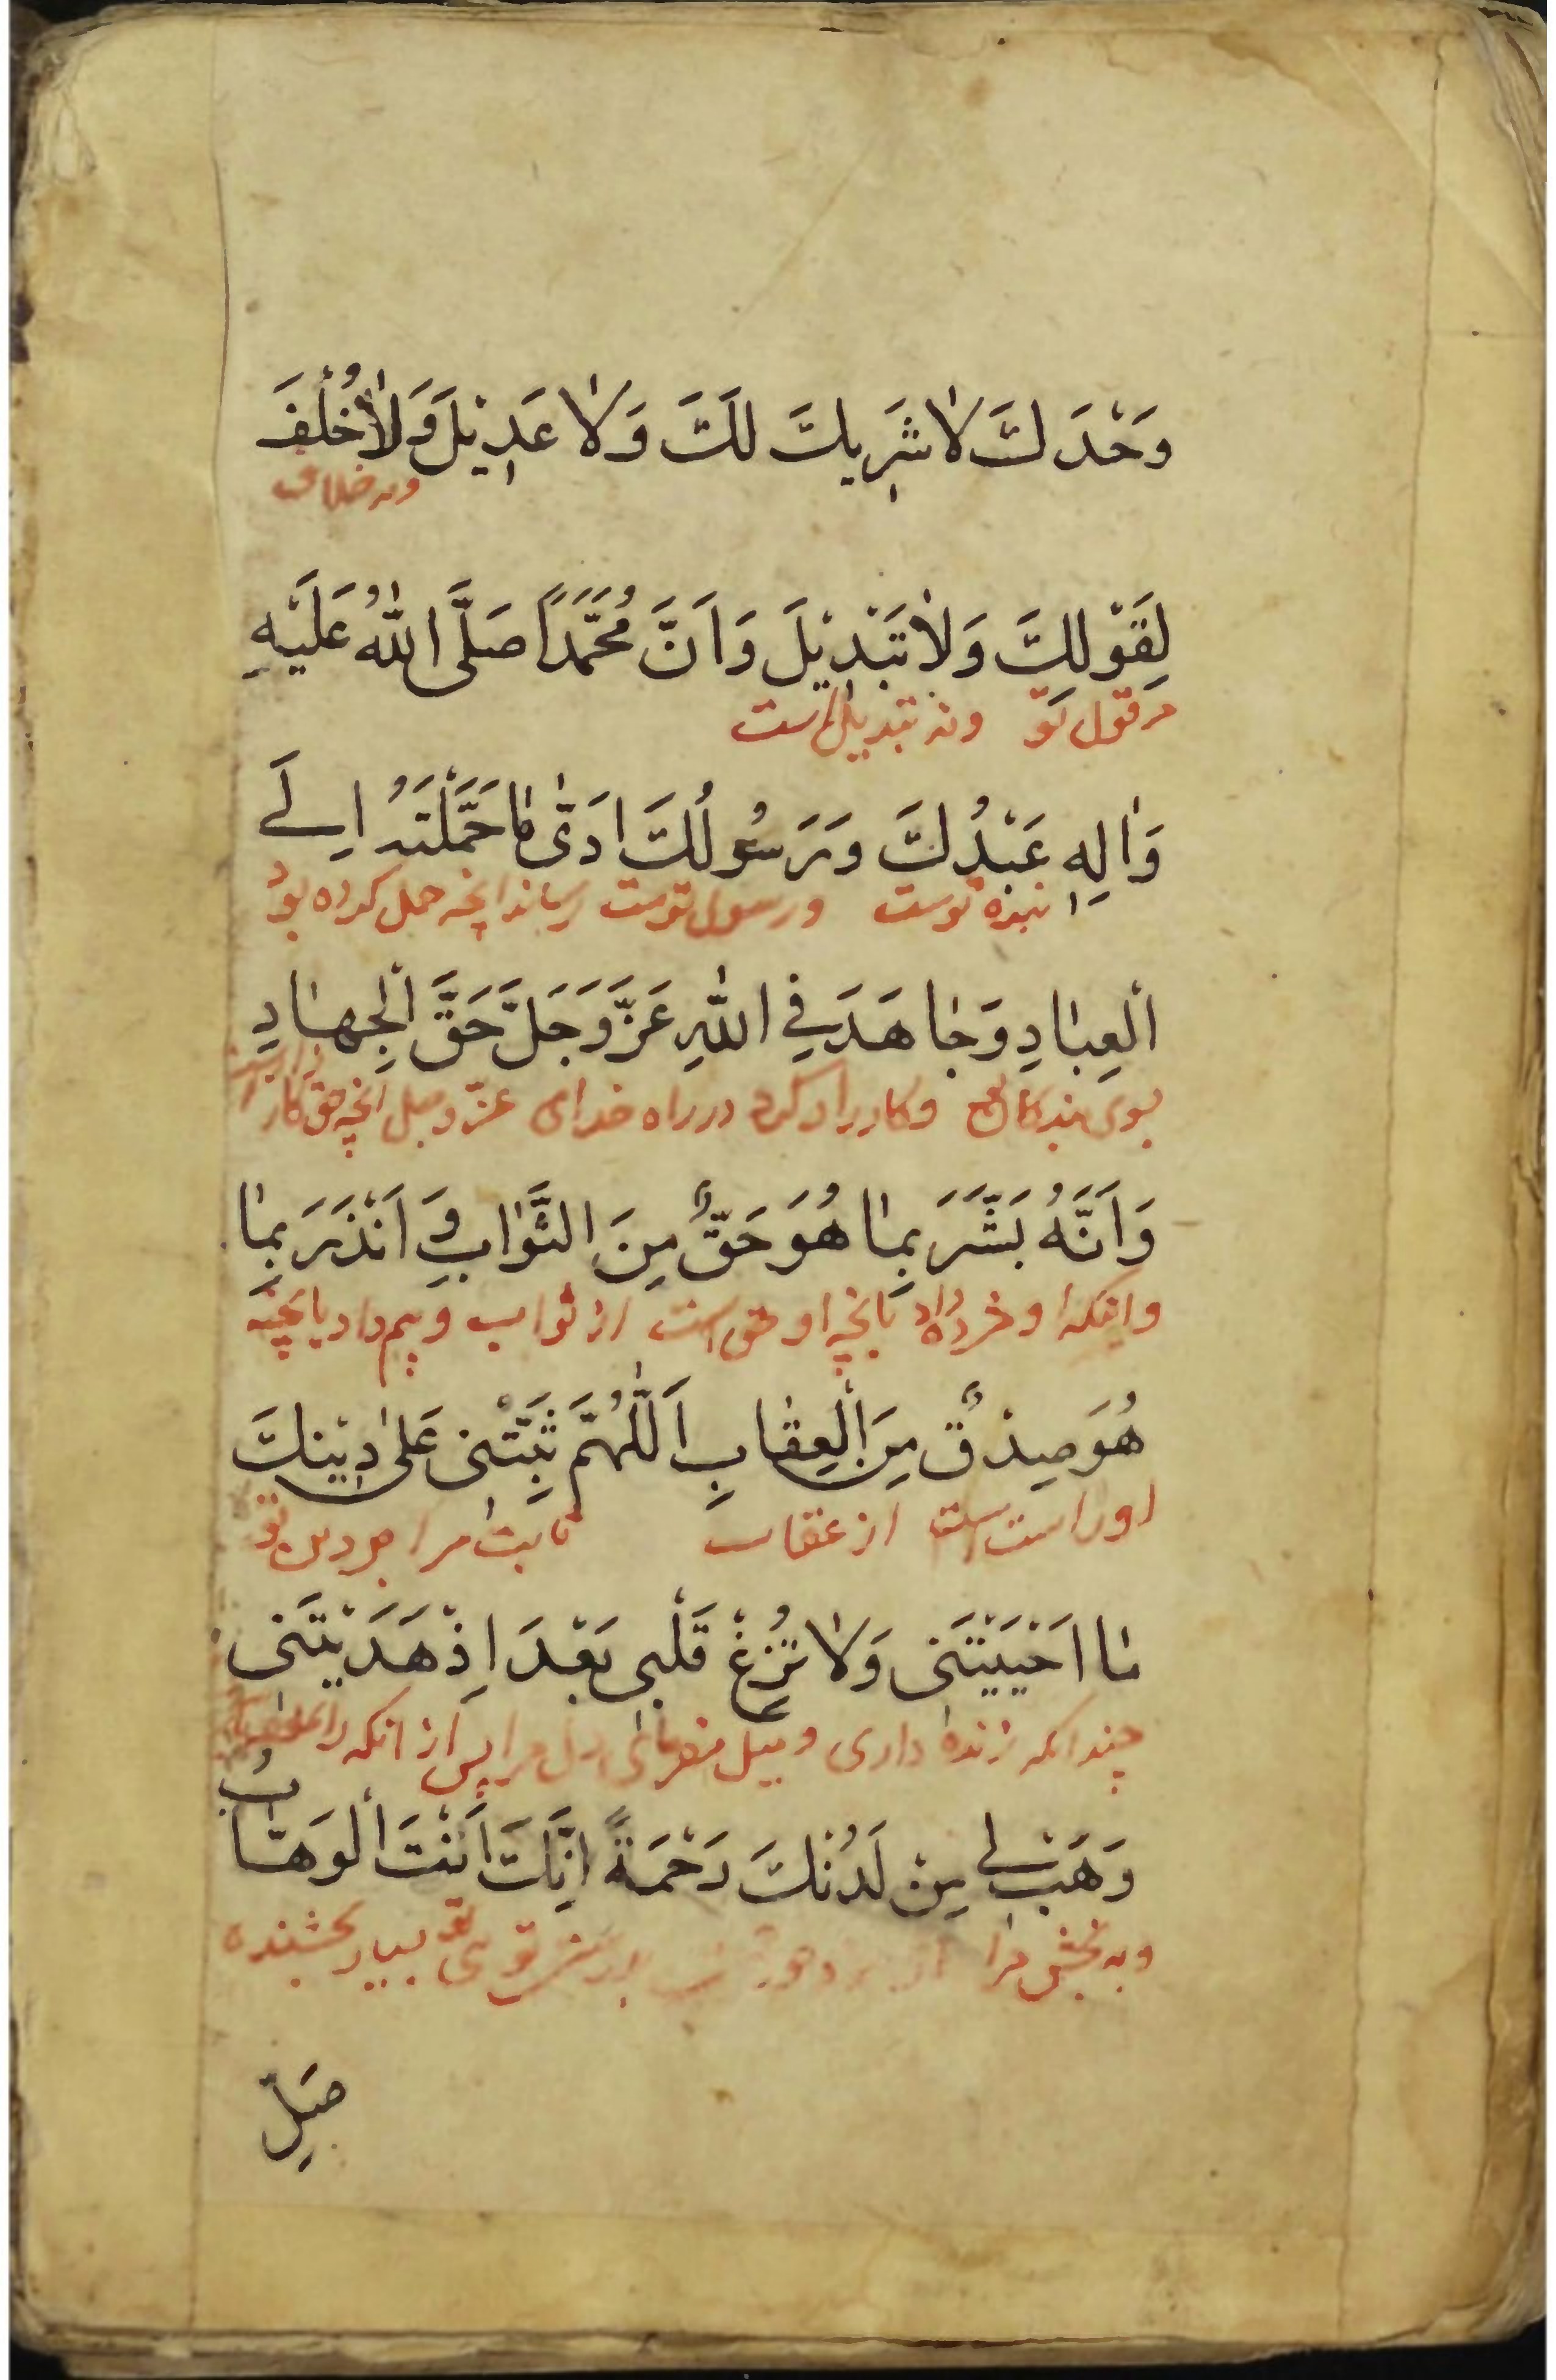 وَحْدَكَ لَا شَرِيكَ لَكَ وَلَا عَدِيْلَ وَلَا خُلْفَ
ونه خلاف
لِقَوْلِكَ وَلَا تَبْدِيْلَ وَاَنَّ مُحَمَّدًا صَلَّى اللّٰهُ عَلَيْهِ
مر قول تو ونه تبدیل است
وَاٰلِهِ عَبْدُكَ وَرَسُولُكَ اَدّٰى مَا حَمَّلْتَهُ اِلَے
بنده توست ورسول توست رساند انچه حمل کرده بود
الْعِبَادِ وَجَاهَدَ فِي اللّٰهِ عَزَّ وَجَلَّ حَقَّ الْجِهَادِ
بسوی بندکان وکارزار کرد در راه خدای عزّ وجل انچه حق کارزار است
وَاَنَّهُ بَشَّرَ بِمَا هُوَ حَقٌّ مِنَ الثَّوَابِ وَاَنْذَرَ بِمَا
واینکه او خبر داد بانچه او حق است از ثواب وبیم داد بانچه
هُوَ صِدْقٌ مِنَ الْعِقَابِ اَللّٰهُمَّ ثَبِّتْنِى عَلٰى دِيْنِكَ
او راست است از عقاب ثابت مرا بر دین تو
مَا اَحْيَيْتَنِى وَلَا تُزِغْ قَلْبِى بَعْدَ اِذْ هَدَيْتَنِى
چندانکه زنده داری ومیل مفرمای دل مرا پس از انکه
وَهَبْ لِى مِنْ لَدُنْكَ رَحْمَةً اِنَّكَ اَنْتَ الْوَهَّابُ
وبه بخش مرا از تو بسیار بخشنده
صَلِّ